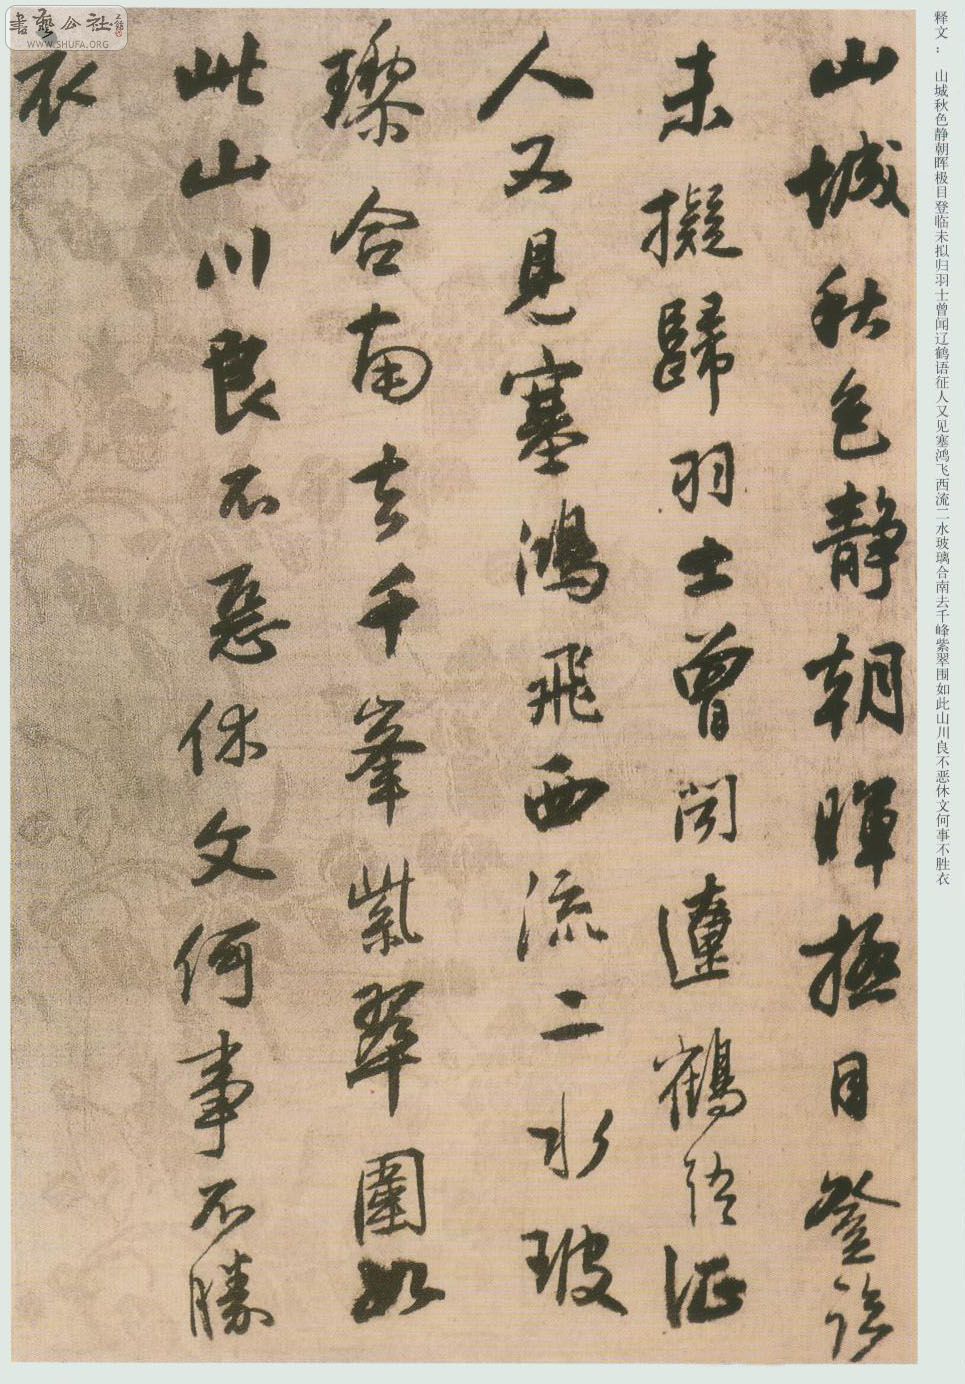 释文： 山城秋色静朝晖极目登临未拟归羽士曾闻辽鹤语征人又见塞鸿飞西流二水玻璃合南去千峰紫翠围如此山川良不恶休文何事不胜衣
山城秋色靜朝暉極目登臨
未擬歸羽士曾聞遼鶴語征
人又見塞鴻飛西流二水玻
瓈合南去千峯紫翠圍如
此山川良不惡休文何事不勝
衣
書藝公社
WWW.SHUFA.ORG